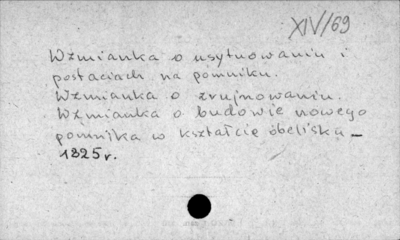 XIV/69
Wzmianka o usytuowaniu i
postaciach na pomniku.
Wzmianka o zrujnowaniu.
Wzmianka o budowie nowego
pomnika w kształcie obeliska –
1825 r.